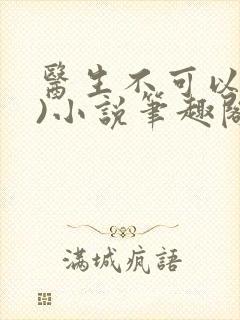 醫生不可以
)小說筆趣閣
滿城瘋語